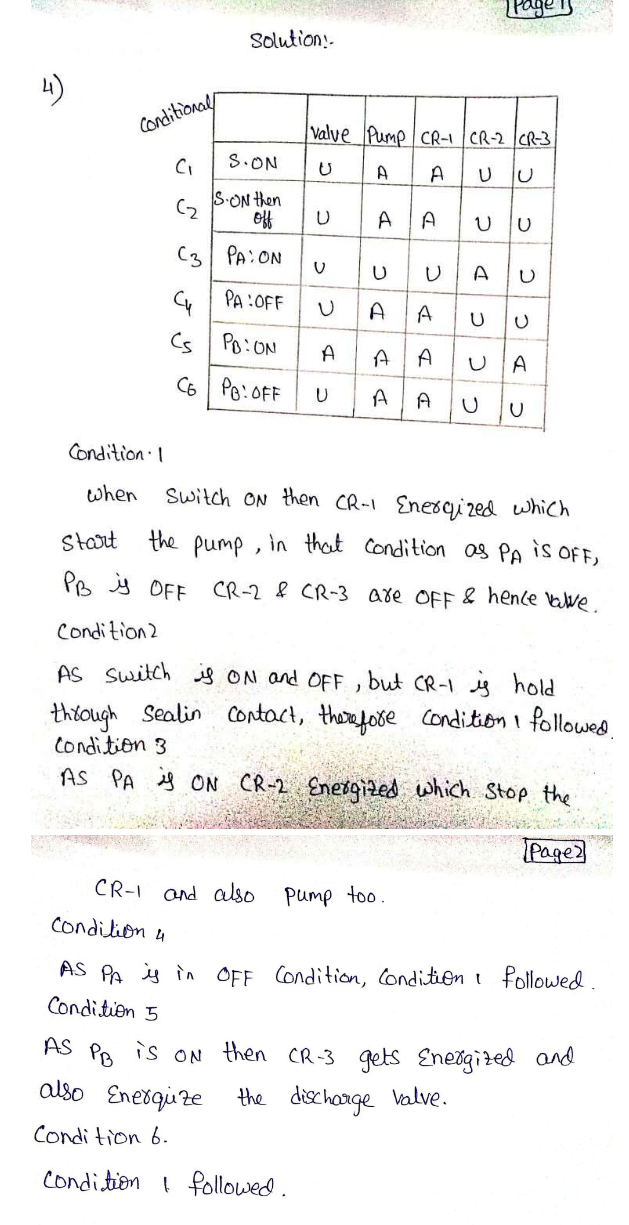 Page 1
Solution:-
4)
Conditional
Valve Pump CR-1 CR-2 CR-3
C1 S.ON U A A U U
C2 S.ON then off U A A U U
C3 PA:ON U U U A U
C4 PA:OFF U A A U U
C5 PB:ON A A A U A
C6 PB:OFF U A A U U
Condition.1
when Switch ON then CR-1 Energized which
Start the pump, in that Condition as PA is OFF,
PB is OFF CR-2 & CR-3 are OFF & hence valve.
Condition2
AS switch is ON and OFF, but CR-1 is hold
through Sealin Contact, therefore Condition 1 followed.
Condition 3
AS PA is ON CR-2 Energized which Stop the
Page2
CR-1 and also Pump too.
Condition 4
AS PA is in OFF Condition, Condition 1 followed.
Condition 5
AS PB is ON then CR-3 gets Energized and
also Energize the discharge valve.
Condition 6.
Condition 1 followed.